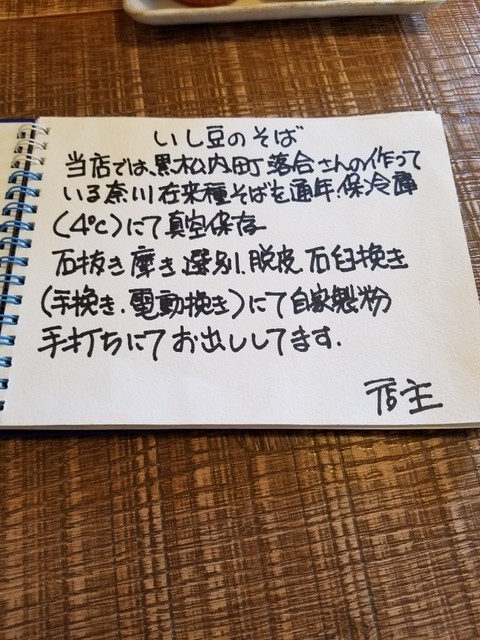 いし豆のそば
当店では、黒松内町落合さんの作って
いる奈川在来種そばを通年、保冷庫
(4℃)にて真空保存
石抜き磨き選別、脱皮、石臼挽き
(手挽き、電動挽き)にて自家製粉
手打ちにてお出ししてます.
店主